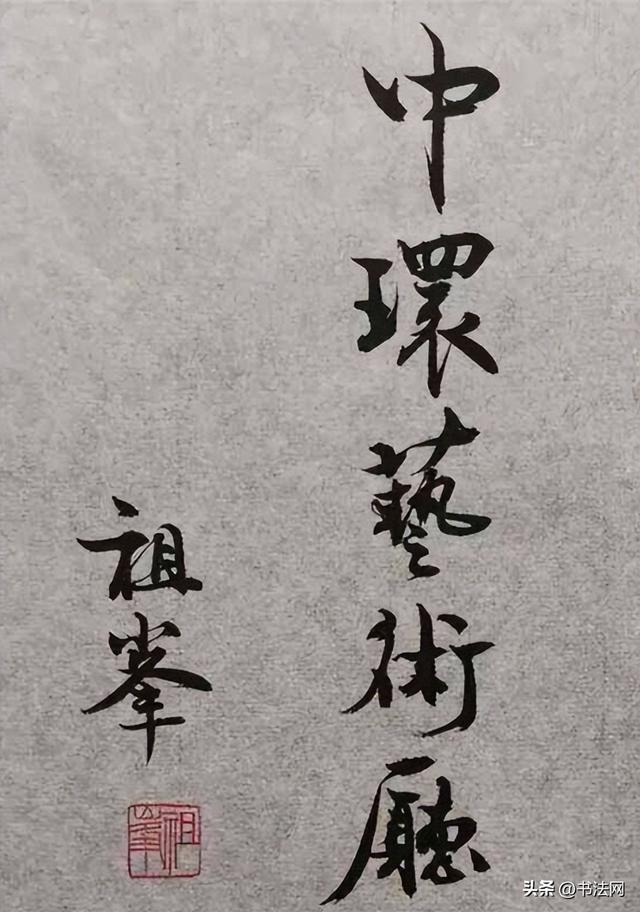 中環藝術廳
祖峯
祖峯
头条@书法网